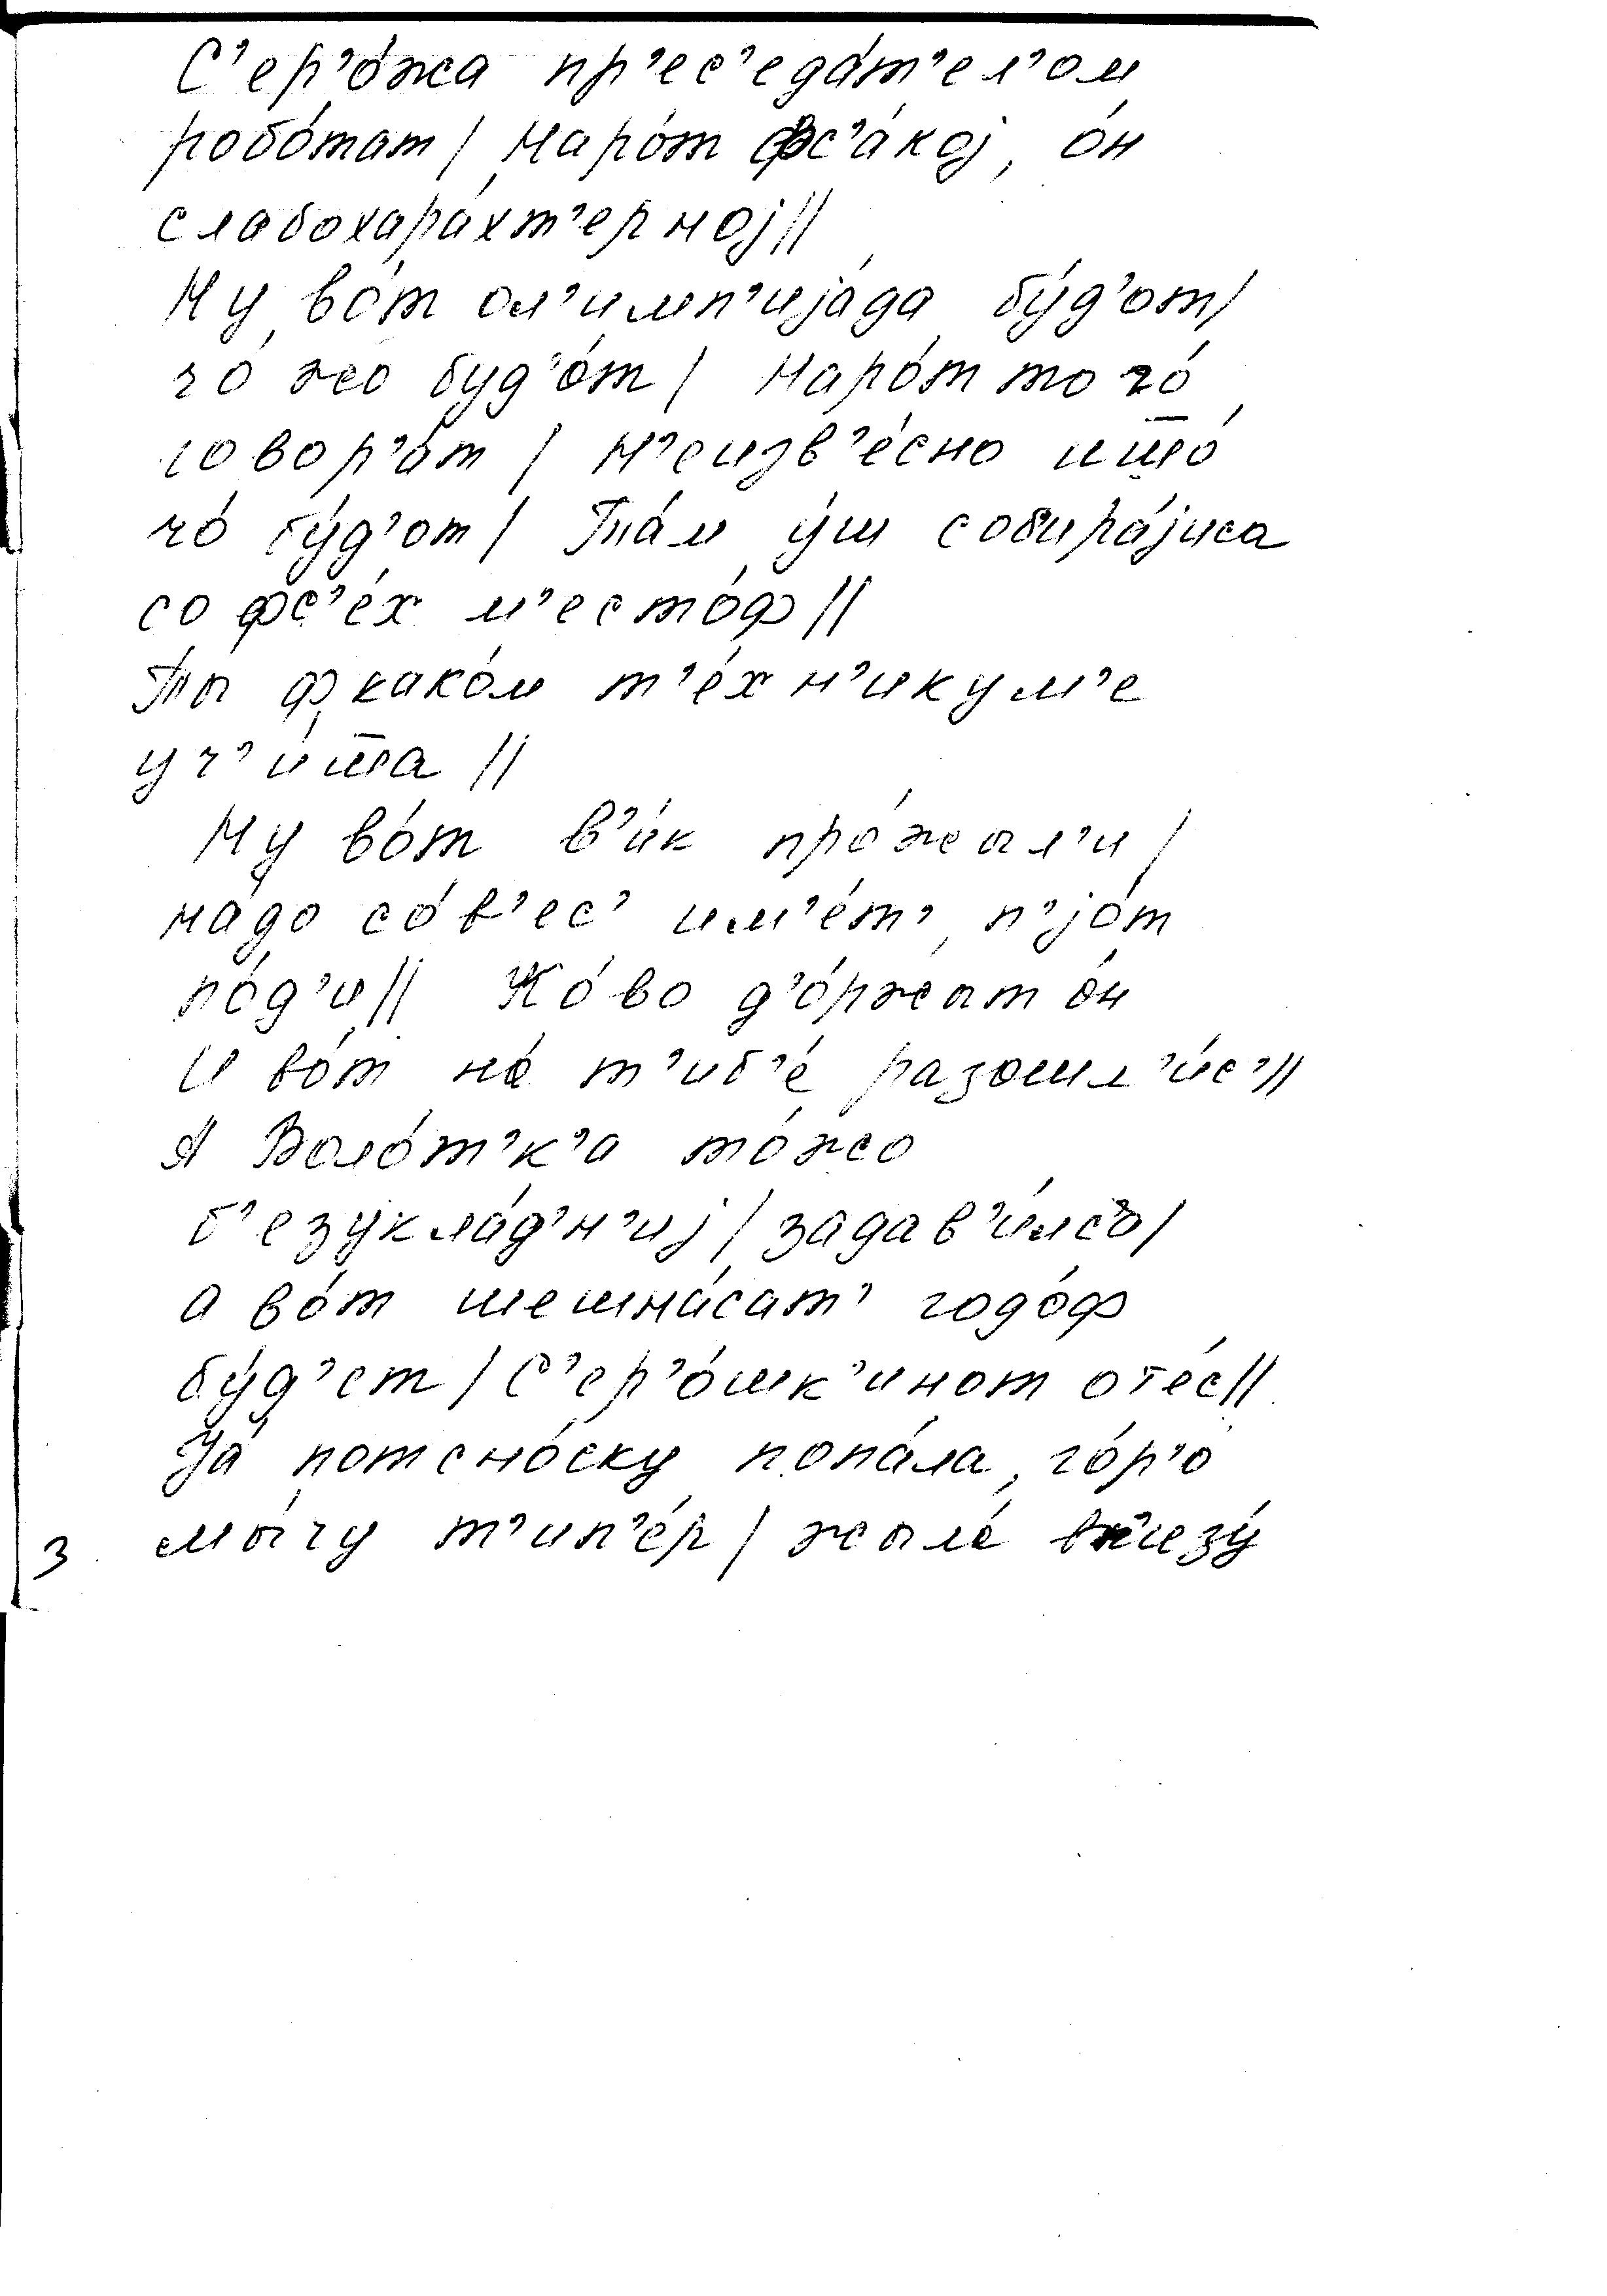 С’ер’о́жа пр’ес’еда́т’ел’ом
робо́тат / Наро́т фс’а́кој, о́н
слабохара́хт’ерној //
Ну во́т ол’имп’ија́да бу́д’от /
чо́ жо буд’о́т / Наро́т то чо́
говор’а́т / Н’еизв’е́сно ишо́
чо́ бу́д’от / Та́м у́ш собира́јиса
со фс’е́х м’есто́ф //
Ты́ ф како́м т’е́хн’икум’е
уч’и́ша //
Ну во́т в’и́к про́жыл’и /
на́до со́в’ес’ им’е́т’, п’јо́т
по́д’и // Ко́во д’о́ржыт о́н
И во́т на́ т’иб’е́ разошл’и́с’ //
А Воло́т’к’а то́жо
б’езукла́д’н’иј / задав’и́лсъ /
а во́т шешна́сат’ годо́ф
бу́д’ет / С’ер’о́шк’инот оте́с //
Ја́ потсно́ску попа́ла, го́р’о
мы́чу т’ип’е́р / жыла́ внизу́
3